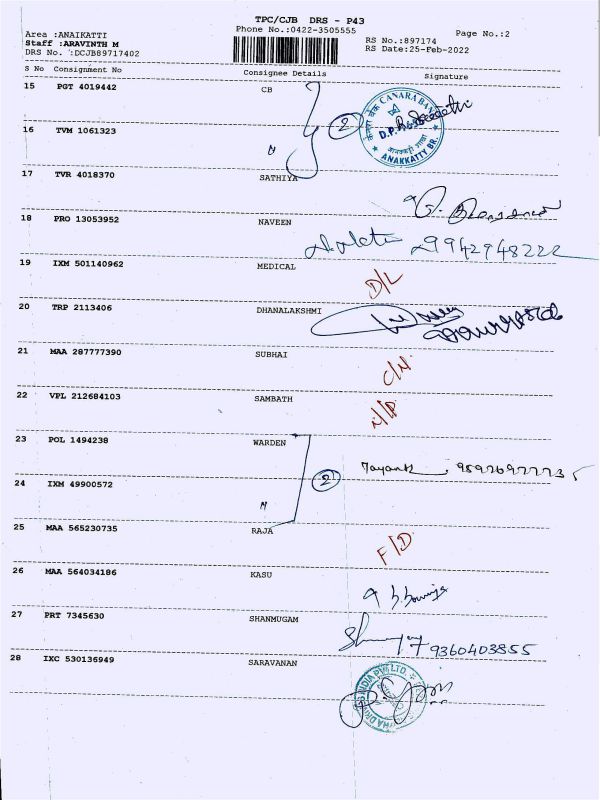 TPC/CJB DRS - P43
Area :ANAIKATTI
Phone No.:0422-3505555
Page No.:2
Staff :ARAVINTH M
RS No.:897174
DRS No. :DCJB89717402
RS Date:25-Feb-2022
S No Consignment No Consignee Details Signature
15 PGT 4019442 CB
CANARA BANK
केनरा बैंक
ANAKKATTY BR.
2
16 TVM 1061323
"
17 TVR 4018370 SATHIYA
18 PRO 13053952 NAVEEN
9942948222
19 IXM 501140962 MEDICAL
D/L
20 TRP 2113406 DHANALAKSHMI
21 MAA 287777390 SUBHAI
C/N
22 VPL 212684103 SAMBATH
N/P
23 POL 1494238 WARDEN
2
24 IXM 49900572
"
25 MAA 565230735 RAJA
F/D
26 MAA 564034186 KASU
27 PRT 7345630 SHANMUGAM
9360403855
28 IXC 530136949 SARAVANAN
INDIA PVT LTD.